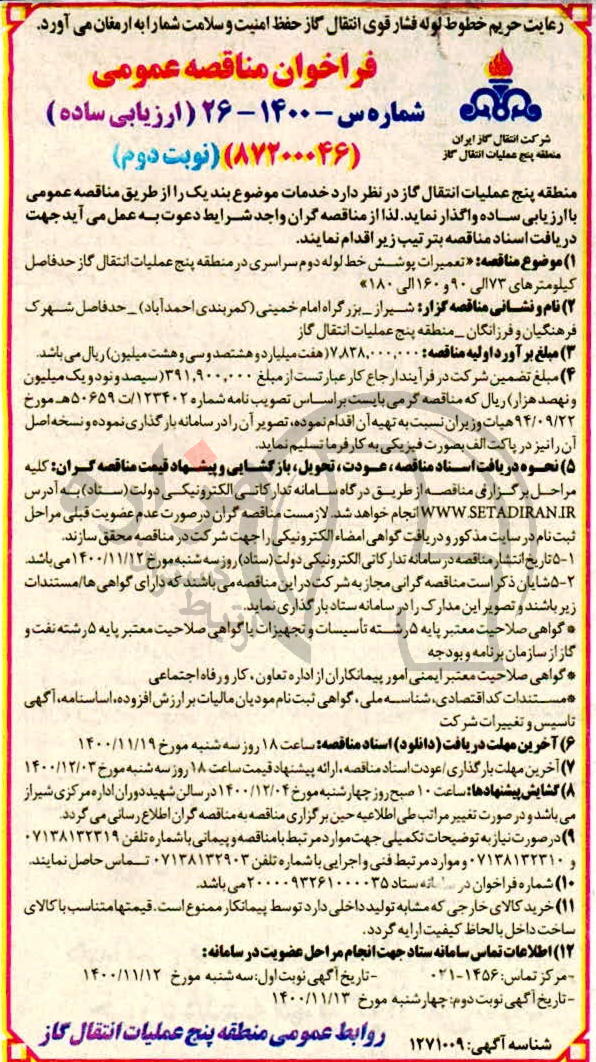 رعایت حریم خطوط لوله فشار قوی انتقال گاز حفظ امنیت و سلامت شما را به ارمغان می آورد.
فراخوان مناقصه عمومی
شماره س - ۱۴۰۰ - ۲۶ (ارزیابی ساده)
(۸۷۲۰۰۰۴۶) (نوبت دوم)
شرکت انتقال گاز ایران
منطقه پنج عملیات انتقال گاز
منطقه پنج عملیات انتقال گاز در نظر دارد خدمات موضوع بند یک را از طریق مناقصه عمومی
با ارزیابی ساده واگذار نماید. لذا از مناقصه گران واجد شرایط دعوت به عمل می آید جهت
دریافت اسناد مناقصه بترتیب زیر اقدام نمایند.
۱) موضوع مناقصه: «تعمیرات پوشش خط لوله دوم سراسری در منطقه پنج عملیات انتقال گاز حدفاصل
کیلومترهای ۷۳ الی ۹۰ و ۱۶۰ الی ۱۸۰»
۲) نام و نشانی مناقصه گزار: شیراز _ بزرگراه امام خمینی (کمربندی احمدآباد) _ حدفاصل شهرک
فرهنگیان و فرزانگان _ منطقه پنج عملیات انتقال گاز
۳) مبلغ برآورد اولیه مناقصه: ۷,۸۳۸,۰۰۰,۰۰۰ (هفت میلیارد و هشتصد و سی و هشت میلیون) ریال می باشد.
۴) مبلغ تضمین شرکت در فرآیند ارجاع کار عبارتست از مبلغ ۳۹۱,۹۰۰,۰۰۰ (سیصد و نود و یک میلیون
و نهصد هزار) ریال که مناقصه گر می بایست بر اساس تصویب نامه شماره ۱۲۳۴۰۲/ت ۵۰۶۵۹هـ مورخ
۹۴/۰۹/۲۲ هیات وزیران نسبت به تهیه آن اقدام نموده، تصویر آن را در سامانه بارگذاری نموده و نسخه اصل
آن را نیز در پاکت الف بصورت فیزیکی به کارفرما تسلیم نماید.
۵) نحوه دریافت اسناد مناقصه، عودت، تحویل، بازگشایی و پیشنهاد قیمت مناقصه گران: کلیه
مراحل برگزاری مناقصه از طریق درگاه سامانه تدارکاتی الکترونیکی دولت (ستاد) به آدرس
WWW.SETADIRAN.IR انجام خواهد شد. لازمست مناقصه گران در صورت عدم عضویت قبلی مراحل
ثبت نام در سایت مذکور و دریافت گواهی امضاء الکترونیکی را جهت شرکت در مناقصه محقق سازند.
۵-۱ تاریخ انتشار مناقصه در سامانه تدارکاتی الکترونیکی دولت (ستاد) روز سه شنبه مورخ ۱۴۰۰/۱۱/۱۲ می باشد.
۵-۲ شایان ذکر است مناقصه گرانی مجاز به شرکت در این مناقصه می باشند که دارای گواهی ها/مستندات
زیر باشند و تصویر این مدارک را در سامانه ستاد بارگذاری نماید.
* گواهی صلاحیت معتبر پایه ۵ رشته تأسیسات و تجهیزات یا گواهی صلاحیت معتبر پایه ۵ رشته نفت و
گاز از سازمان برنامه و بودجه
* گواهی صلاحیت معتبر ایمنی امور پیمانکاران از اداره تعاون، کار و رفاه اجتماعی
* مستندات کد اقتصادی، شناسه ملی، گواهی ثبت نام مودیان مالیات بر ارزش افزوده، اساسنامه، آگهی
تاسیس و تغییرات شرکت
۶) آخرین مهلت دریافت (دانلود) اسناد مناقصه: ساعت ۱۸ روز سه شنبه مورخ ۱۴۰۰/۱۱/۱۹
۷) آخرین مهلت بارگذاری/عودت اسناد مناقصه، ارائه پیشنهاد قیمت ساعت ۱۸ روز سه شنبه مورخ ۱۴۰۰/۱۲/۰۳
۸) گشایش پیشنهادها: ساعت ۱۰ صبح روز چهارشنبه مورخ ۱۴۰۰/۱۲/۰۴ در سالن شهید دوران اداره مرکزی شیراز
می باشد و در صورت تغییر مراتب طی اطلاعیه حین برگزاری مناقصه به مناقصه گران اطلاع رسانی می گردد.
۹) در صورت نیاز به توضیحات تکمیلی جهت موارد مرتبط با مناقصه و پیمانی با شماره تلفن ۰۷۱۳۸۱۳۲۳۱۹
و ۰۷۱۳۸۱۳۲۳۱۰ و موارد مرتبط فنی و اجرایی با شماره تلفن ۰۷۱۳۸۱۳۲۹۰۳ تماس حاصل نمایند.
۱۰) شماره فراخوان در سامانه ستاد ۲۰۰۰۰۹۳۲۶۱۰۰۰۰۳۵ می باشد.
۱۱) خرید کالای خارجی که مشابه تولید داخلی دارد توسط پیمانکار ممنوع است. قیمتها متناسب با کالای
ساخت داخل با لحاظ کیفیت ارایه گردد.
۱۲) اطلاعات تماس سامانه ستاد جهت انجام مراحل عضویت در سامانه:
-مرکز تماس: ۱۴۵۶-۰۲۱ -تاریخ آگهی نوبت اول: سه شنبه مورخ ۱۴۰۰/۱۱/۱۲
-تاریخ آگهی نوبت دوم: چهارشنبه مورخ ۱۴۰۰/۱۱/۱۳
شناسه آگهی: ۱۲۷۱۰۰۹ روابط عمومی منطقه پنج عملیات انتقال گاز